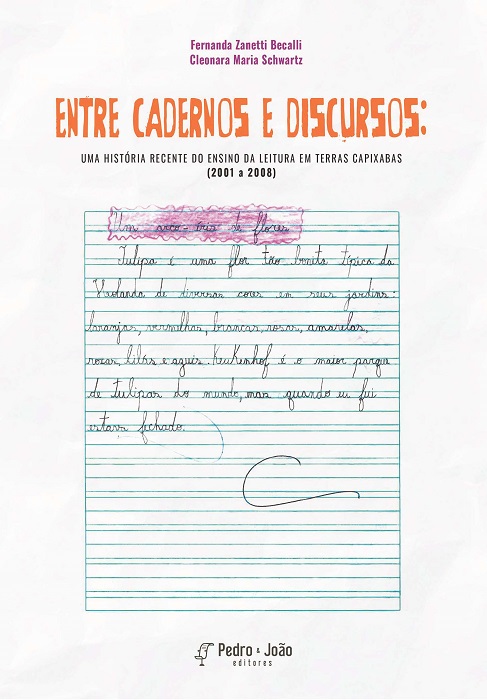 Fernanda Zanetti Becalli
Cleonara Maria Schwartz
ENTRE CADERNOS E DISCURSOS:
UMA HISTÓRIA RECENTE DO ENSINO DA LEITURA EM TERRAS CAPIXABAS
(2001 a 2008)
Um arco-íris de flores
Tulipa é uma flor tão bonita típica da
Holanda de diversas cores em seus jardins:
laranjas, vermelhas, brancas, rosas, amarelas,
roxas, lilás e azuis. Keukenhof é o maior parque
de tulipas do mundo, mas quando eu fui
estava fechado.
Pedro & João
editores